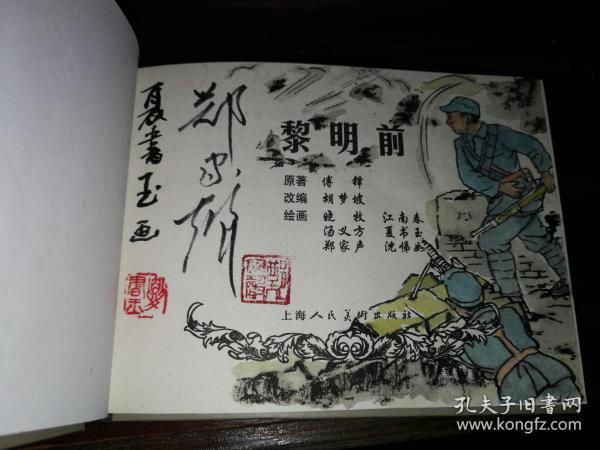 夏书玉画
郑家声
黎明前
原著 傅铎
改编 胡梦坡
绘画 晓牧 江南春
汤义方 夏书玉
郑家声 沈悌如
上海人民美术出版社
孔夫子旧书网
www.kongfz.com